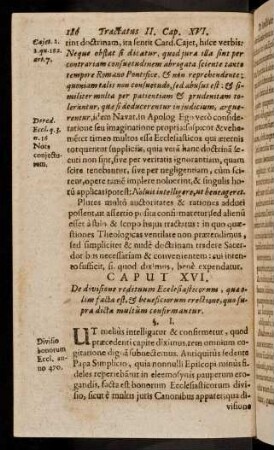 186 Tractatus II. Cap. XVI.
Cajet. 1.
2. qu. 102.
art. 7.
rint doctrinam, ita sentit Card. Cajet, hisce verbis:
Neque obstat si dicatur, quod jura illa sint per
contrariam consuetudinem abrogata sciente tanto
tempore Romano Pontifice, & non reprehendente:
quoniam talis non consuetudo, sed abusus est: & si
militer multa per patientiam & prudentiam to
lerantur, quæ si doducerentur in indicium, argue
rentur, idem Navar. in Apolog. Ego verò conside
De red.
Eccl. q. 3.
n. 16
Nota
conjectu-
ram.
ratione seu imaginatione propria suspicor & vehe-
menter timeo multos esse Ecclesiasticos qui æternis
torquentur suppliciis, quia verà hanc doctrinã le-
cti non sint, sive per veritatis ignorantiam, quam
scire tenebantur, sive per negligentiam, cùm sci-
rent, opere tamẽ implere noluerint, & singulis ho-
rũ applicari potest: Noluit intelligere, ut bene ageret.
Plures multò auctoritates & rationes addori
possent, ut assertio posita confirmaretur sed alienũ
esset à stilo & scopo hujus tractatus: in quo quæ-
stiones Theologicas ventilare non prætendimus,
sed simpliciter & nudè doctrinam tradere Sacer-
dotibus necessariam & convenientem: cui inten-
to sufficit, si quod diximus, benè expendatur.
CAPUT XVI.
De divisione reditnum Ecclesiasticorum, qua-
lim facta est, & beneficiorum erectione, quo su-
pra dicta multùm confirmantur.
§. I.
Divisio
bonorum
Eccl. an-
no 470.
UT meliùs intelligatur & confirmetur, quod
præcedenti capite diximus, rem omnium co-
gitatione dignã subnectemus. Antiquitùs sedente
Papa Simplicio, quia nonnulli Episcopi minùs fi-
deles reperiebantur in eleemosynis pauperum ero-
gandis, facta est bonorum Ecclesiasticorum divi-
sio, sicut è multis juris Canonibus apparet, quæ di-
visione